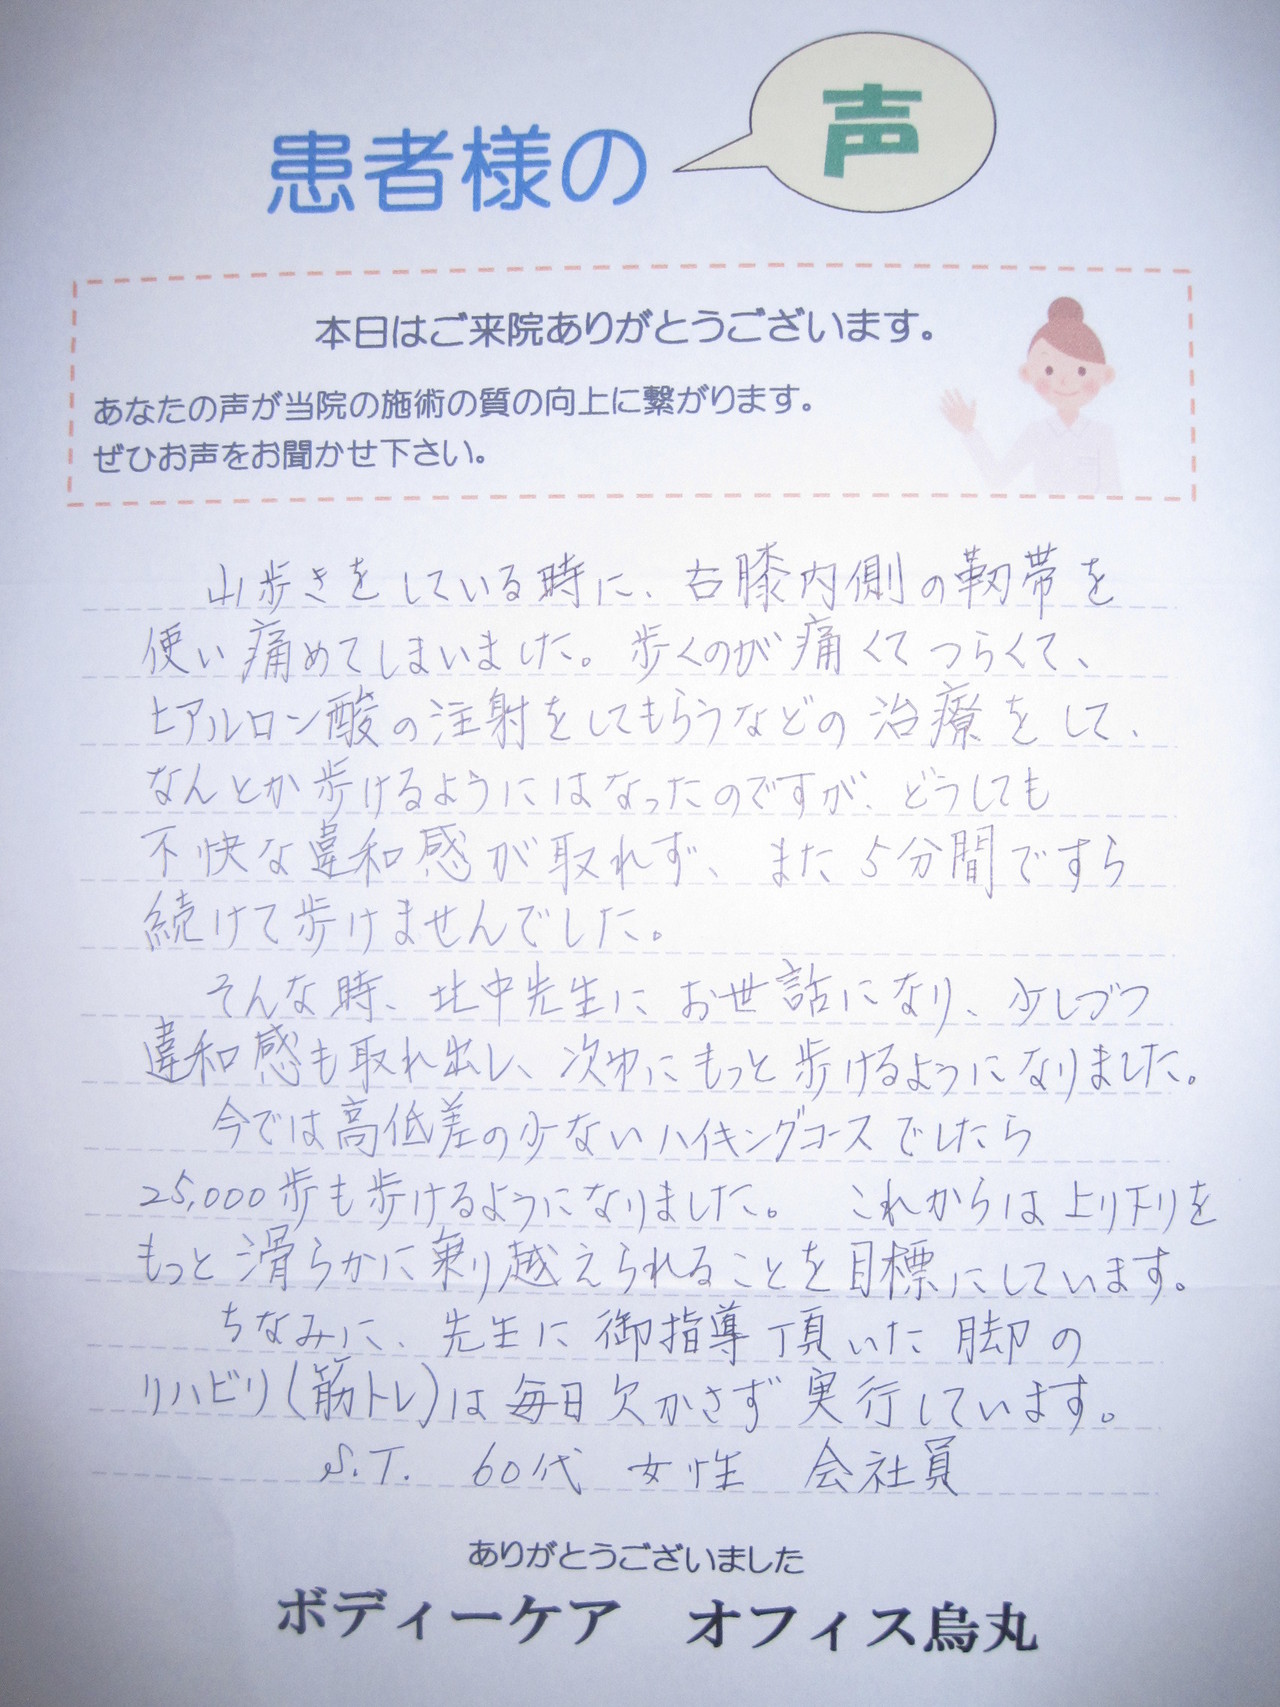 患者様の声
本日はご来院ありがとうございます。
あなたの声が当院の施術の質の向上に繋がります。
ぜひお声をお聞かせ下さい。
山歩きをしている時に、右膝内側の靭帯を
使い痛めてしまいました。歩くのが痛くてつらくて、
ヒアルロン酸の注射をしてもらうなどの治療をして、
なんとか歩けるようにはなったのですが、どうしても
不快な違和感が取れず、また5分間ですら
続けて歩けませんでした。
そんな時、北中先生にお世話になり、少しづつ
違和感も取れ出し、次第にもっと歩けるようになりました。
今では高低差の少ないハイキングコースでしたら
25,000歩も歩けるようになりました。 これからは上り下りを
もっと滑らかに乗り越えられることを目標にしています。
ちなみに、先生に御指導頂いた脚の
リハビリ(筋トレ)は毎日欠かさず実行しています。
S.T. 60代 女性 会社員
ありがとうございました
ボディーケア オフィス烏丸